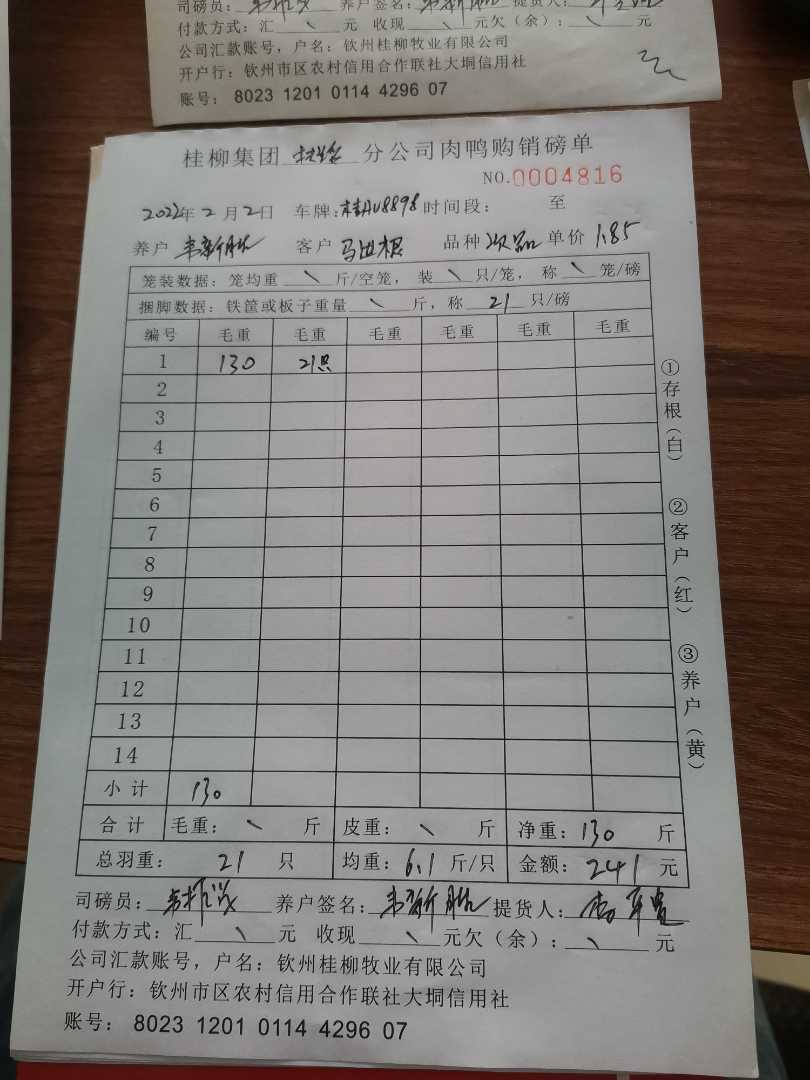 司磅员： 养户签名： 提货人：
付款方式：汇 \ 元 收现 \ 元欠（余）：\ 元
公司汇款账号，户名：钦州桂柳牧业有限公司
开户行：钦州市区农村信用合作联社大垌信用社
账号： 8023 1201 0114 4296 07
桂柳集团 分公司肉鸭购销磅单
NO.0004816
2022年2月2日 车牌：桂AU8898 时间段： 至
养户 韦新胜 客户 马进根 品种 次品 单价 1.85
笼装数据：笼均重 \ 斤/空笼，装 \ 只/笼，称 \ 笼/磅
捆脚数据：铁筐或板子重量 \ 斤，称 21 只/磅
编号 毛重 毛重 毛重 毛重 毛重 毛重
1 130 21只
2
3
4
5
6
7
8
9
10
11
12
13
14
小计 130
合计 毛重： \ 斤 皮重： \ 斤 净重：130 斤
总羽重： 21 只 均重：6.1 斤/只 金额：241 元
司磅员： 养户签名：韦新胜 提货人：
付款方式：汇 \ 元 收现 \ 元欠（余）：\ 元
公司汇款账号，户名：钦州桂柳牧业有限公司
开户行：钦州市区农村信用合作联社大垌信用社
账号： 8023 1201 0114 4296 07
①存根（白）
②客户（红）
③养户（黄）